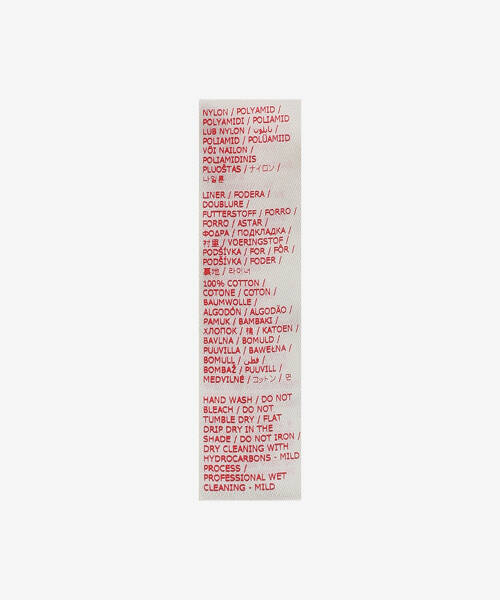 NYLON / POLYAMID /
POLYAMIDI / POLIAMID
LUB NYLON / نايلون /
POLIAMID / POLÜAMIID
VÕI NAILON /
POLIAMIDINIS
PLUOŠTAS / ナイロン /
나일론
LINER / FODERA /
DOUBLURE /
FUTTERSTOFF / FORRO /
FORRO / ASTAR /
ФОДРА / ПОДКЛАДКА /
衬里 / VOERINGSTOF /
PODŠÍVKA / FOR / FÔR /
PODŠÍVKA / FODER /
裏地 / 라이너
100% COTTON /
COTONE / COTON /
BAUMWOLLE /
ALGODÓN / ALGODÃO /
PAMUK / BAMBAKI /
ХЛОПОК / 棉 / KATOEN /
BAVLNA / BOMULD /
PUUVILLA / BAWEŁNA /
BOMULL / قطن /
BOMBAŽ / PUUVILL /
MEDVILNĖ / コットン / 면
HAND WASH / DO NOT
BLEACH / DO NOT
TUMBLE DRY / FLAT
DRIP DRY IN THE
SHADE / DO NOT IRON /
DRY CLEANING WITH
HYDROCARBONS - MILD
PROCESS /
PROFESSIONAL WET
CLEANING - MILD